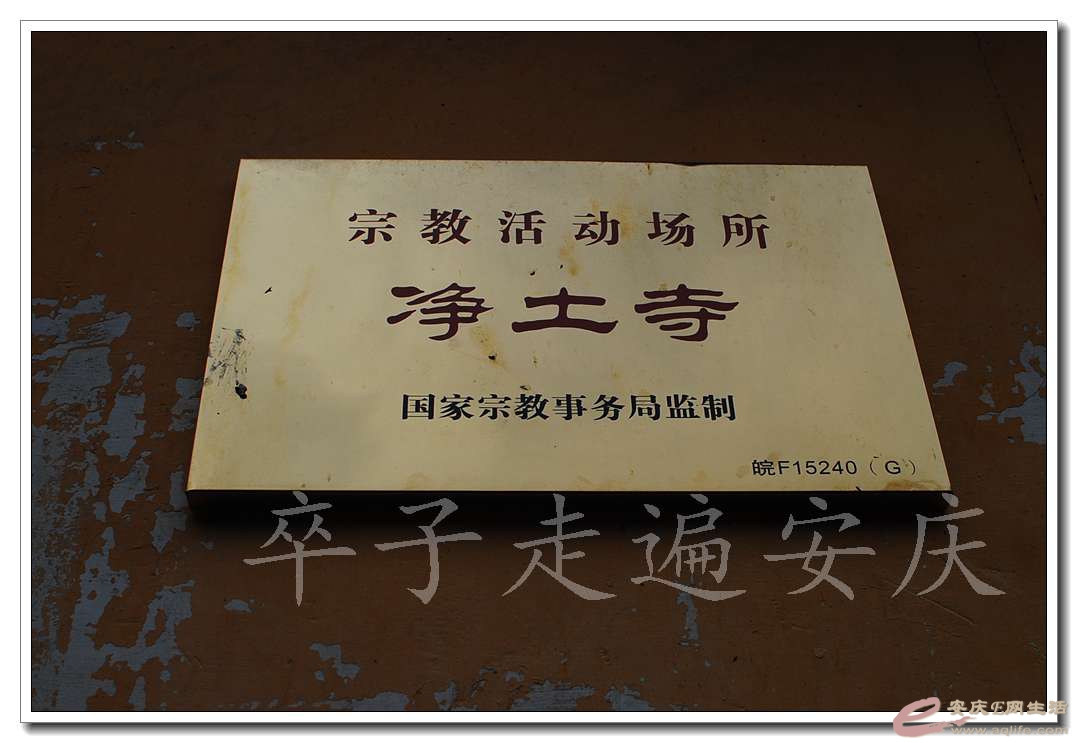 宗教活动场所
净土寺
国家宗教事务局监制
皖F15240（G）
卒子走遍安庆
安庆E网生活
www.aqlife.com